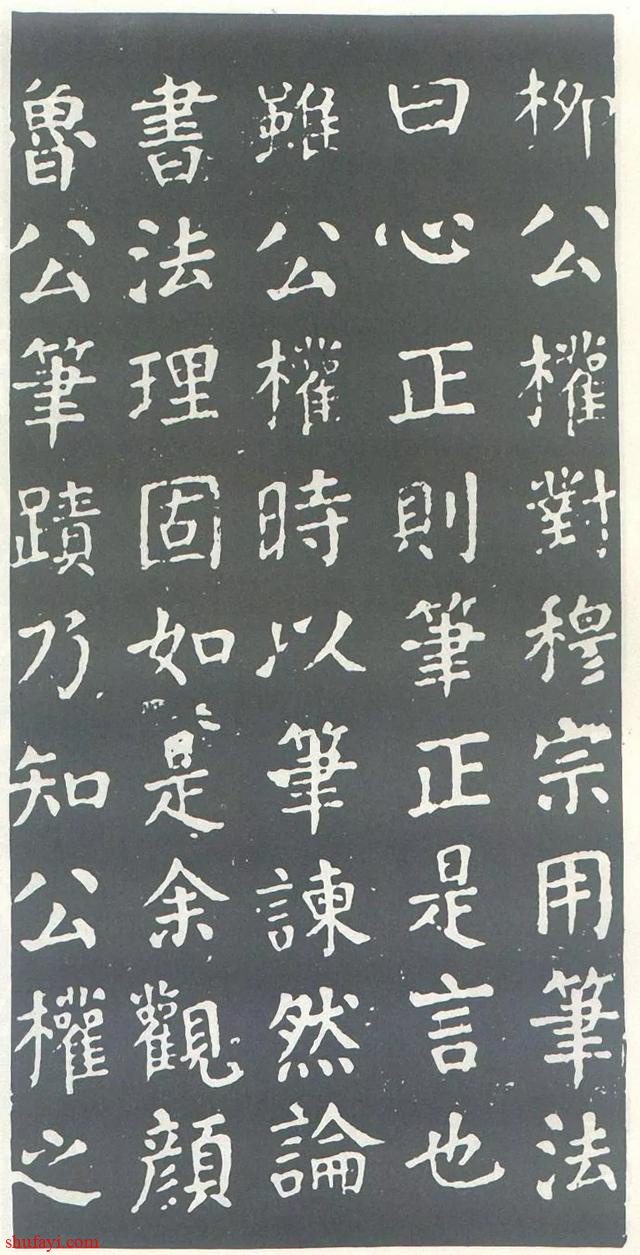 柳公權對穆宗用筆法
曰心正則筆正是言也
雖公權時以筆諫然論
書法理固如是余觀顔
魯公筆蹟乃知公權之
shufayi.com